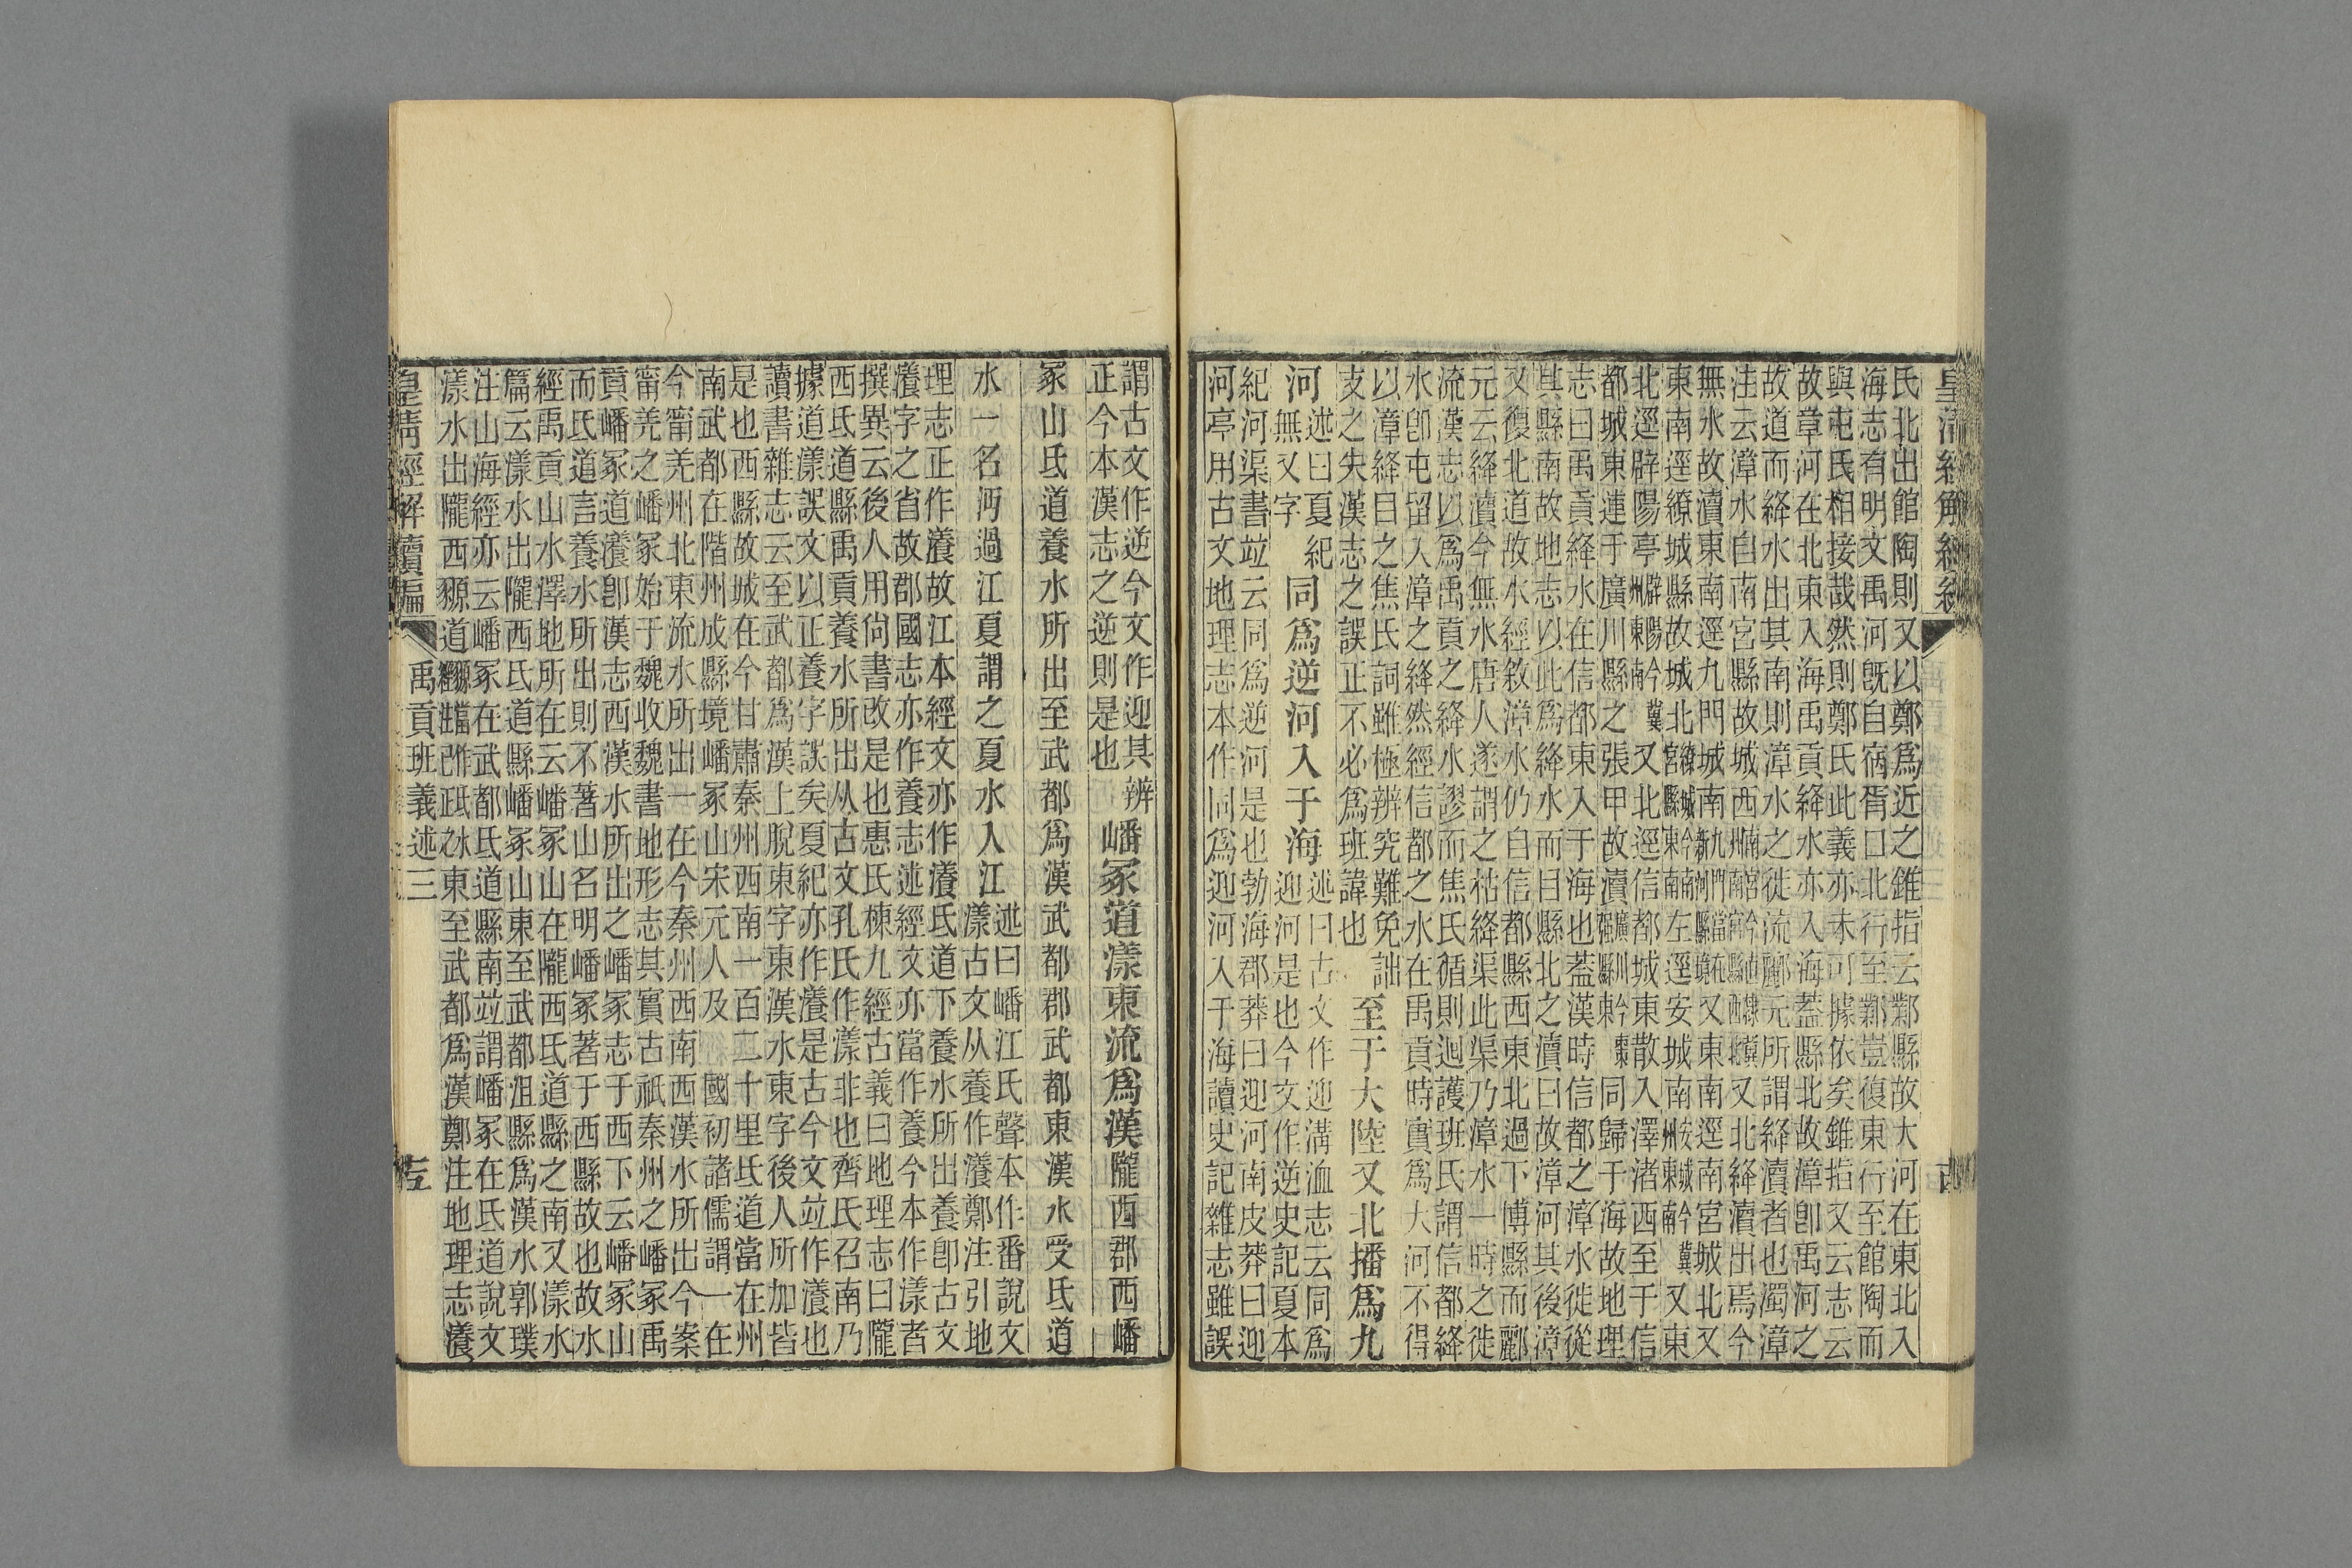 皇清經解續編
氏北出館陶則又以鄭爲近之錐指云鄴縣故大河在東北入
海志有明文禹河旣自宿胥口北行至鄴豈復東行至館陶而
與屯氏相接哉然則鄭氏此義亦未可據依矣錐指又云志云
故章河在北東入海禹貢絳水亦入海蓋縣北故漳卽禹河之
故道而絳水出其南則漳水之徙流酈元所謂絳瀆者也濁漳
注云漳水自南宮縣故城西又北絳瀆出焉今
無水故瀆東南逕九門城南又東南逕南宮城北又
東南逕繚城縣故城北左逕安城南又東
北逕辟陽亭又北逕信都城東散入澤渚西至于信
都城東連于廣川縣之張甲故瀆同歸于海故地理
志曰禹貢絳水在信都東入于海也蓋漢時信都之漳水徙從
其縣南故地志以此爲絳水而目縣北之瀆曰故漳河其後漳
又復北道故水經敘漳水仍自信都縣西東北過下博縣而酈
元云絳瀆今無水唐人遂謂之枯絳渠此渠乃漳水一時之徙
流漢志以爲禹貢之絳水謬而焦氏循則迴護班氏謂信都絳
水卽屯留入漳之絳然經信都之水在禹貢時實爲大河不得
以漳絳目之焦氏詞雖極辨究難免詘
支之失漢志之誤正不必爲班諱也
至于大陸又北播爲九
河
述曰夏紀
無又字
同爲逆河入于海
述曰古文作迎溝洫志云同爲
迎河是也今文作逆史記夏本
紀河渠書竝云同爲逆河是也勃海郡莽曰迎河南皮莽曰迎
河亭用古文地理志本作同爲迎河入于海讀史記雜志雖誤
謂古文作逆今文作迎其辨
正今本漢志之逆則是也
嶓冢道漾東流爲漢隴西郡西嶓
冢山氐道養水所出至武都爲漢武都郡武都東漢水受氐道
水一名沔過江夏謂之夏水入江
述曰嶓江氏聲本作番說文
漾古文从養作瀁鄭注引地
理志正作瀁故江本經文亦作瀁氐道下養水所出養卽古文
瀁字之省故郡國志亦作養志述經文亦當作養今本作漾者
撰異云後人用尙書改是也惠氏棟九經古義曰地理志曰隴
西氐道縣禹貢養水所出从古文孔氏作漾非也齊氏召南乃
據道漾誤文以正養字誤矣夏紀亦作瀁是古今文竝作瀁也
讀書雜志云至武都爲漢上脫東字東漢水東字後人所加皆
是也西縣故城在今甘肅秦州西南一百二十里氐道當在州
南武都在階州成縣境嶓冢山宋元人及國初諸儒謂一在
今甯羌州北東流水所出一在今秦州西南西漢水所出今案
甯羌之嶓冢始于魏收魏書地形志其實古祇秦州之嶓冢禹
貢嶓冢道瀁卽漢志西漢水所出之嶓冢志于西下云嶓冢山
而氐道言養水所出則不著山名明嶓冢著于西縣故也故水
經禹貢山水澤地所在云嶓冢山在隴西氐道縣之南又漾水
篇云漾水出隴西氐道縣嶓冢山東至武都沮縣爲漢水郭璞
注山海經亦云嶓冢在武都氐道縣南竝謂嶓冢在氐道說文
漾水出隴西豲道東至武都爲漢鄭注地理志瀁
皇清經解續編
禹貢班義述三